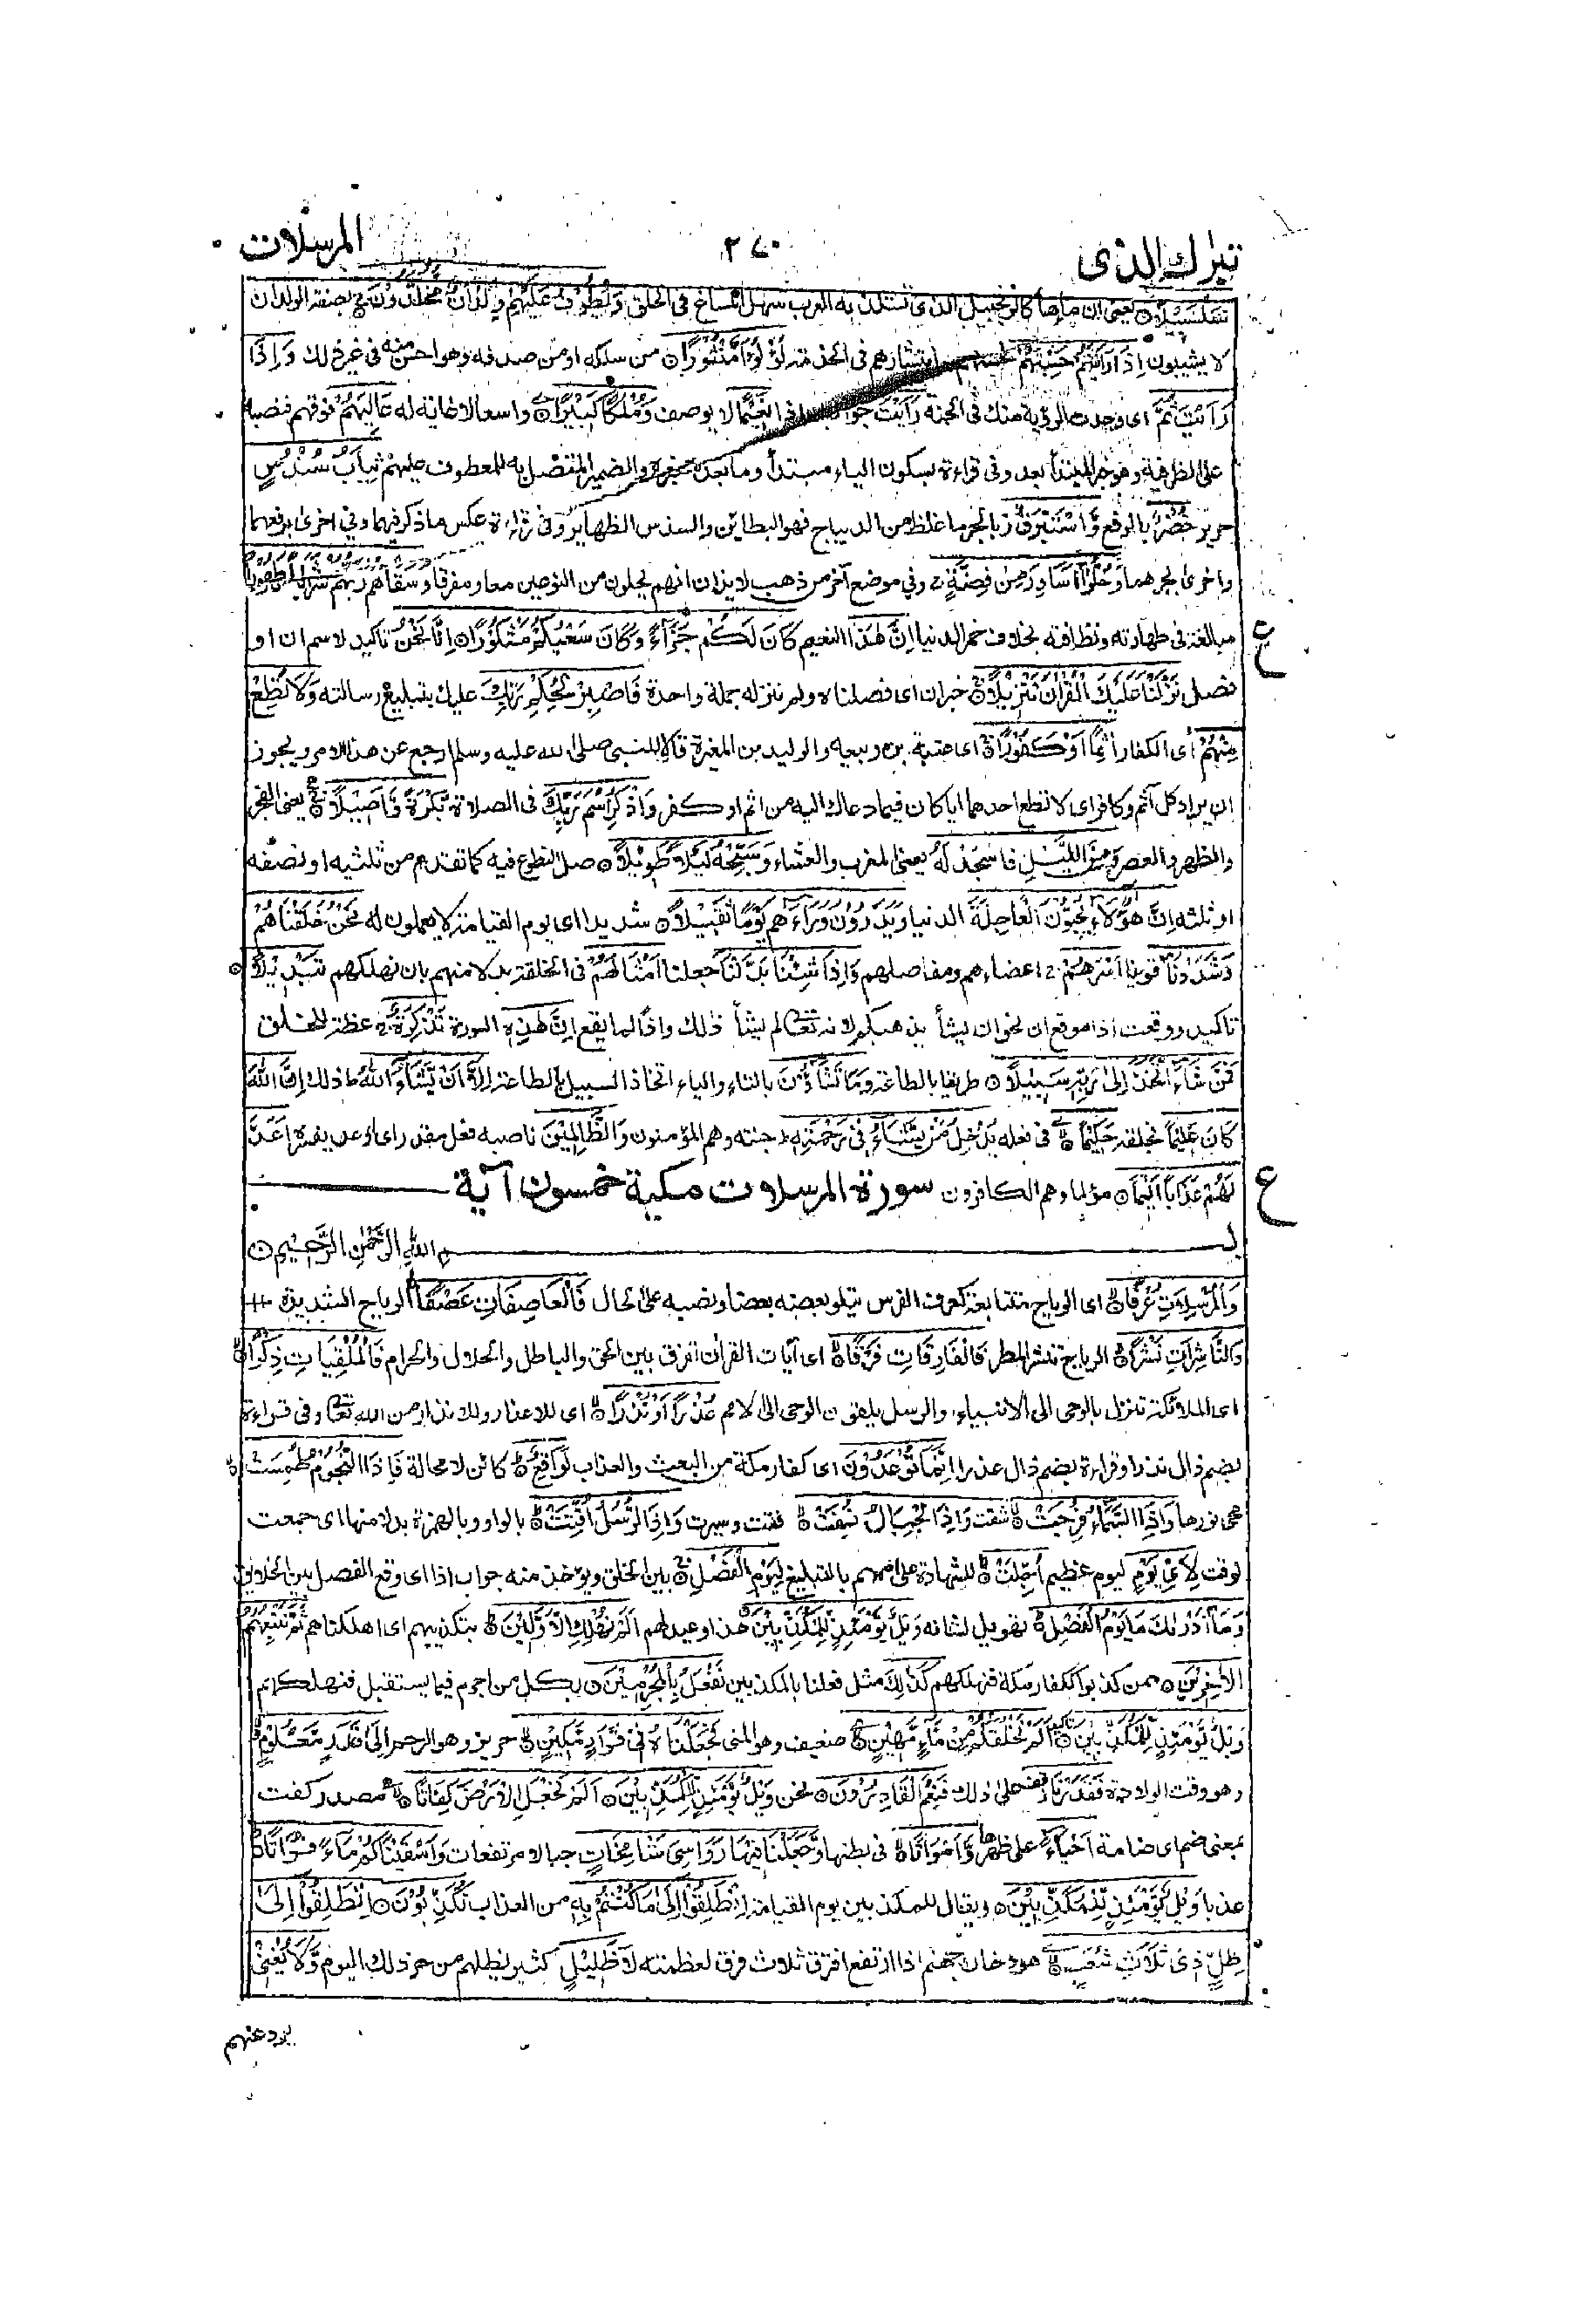 تبرك الذى
٢٧٠
المرسلات
تسمى سَلْسَبِيْلًا ۝ يعنى ان ماءها كالزنجبيل الذى تستلذ به العرب سهل المساغ فى الحلق وَيَطُوْفُ عَلَيْهِمْ وِلْدَانٌ مُّخَلَّدُوْنَ بصفة الولدان
لا يشيبون اِذَا رَاَيْتَهُمْ حَسِبْتَهُمْ لحسنهم وانتشارهم فى الخدمة لُؤْلُؤًا مَّنْثُوْرًا ۝ من سلكه او من صدفه وهو احسن منه فى غير ذلك وَاِذَا
رَاَيْتَ ثَمَّ اى وجدت الرؤية منك فى الجنة رَاَيْتَ جواب اذا نَعِيْمًا لا يوصف وَّمُلْكًا كَبِيْرًا ۝ واسعا لا غاية له عَالِيَهُمْ فوقهم فنصبه
على الظرفية وهو خبر المبتدأ بعد وفى قراءة بسكون الياء مبتدأ وما بعده خبره والضمير المتصل به للمعطوف عليهم ثِيَابُ سُنْدُسٍ
حرير خُضْرٌ بالرفع وَّاِسْتَبْرَقٌ ز بالجر ما غلظ من الديباج فهو البطائن والسندس الظهاير وفى قراءة عكس ما ذكر فيهما وفى اخرى برفعهما
واخرى بجرهما وَّحُلُّوْا اَسَاوِرَ مِنْ فِضَّةٍ وفى موضع آخر من ذهب للايذان انهم يحلون من النوعين معا ومفرقا وَسَقَاهُمْ رَبُّهُمْ شَرَابًا طَهُوْرًا
مبالغة فى طهارته ونظافته بخلاف خمر الدنيا اِنَّ هٰذَا النعيم كَانَ لَكُمْ جَزَآءً وَّكَانَ سَعْيُكُمْ مَّشْكُوْرًا ۝ اِنَّا نَحْنُ تاكيد لاسم ان او
فصل نَزَّلْنَا عَلَيْكَ الْقُرْاٰنَ تَنْزِيْلًا ۝ خبر ان اى فصلناه ولم ننزله جملة واحدة فَاصْبِرْ لِحُكْمِ رَبِّكَ عليك بتبليغ رسالته وَلَا تُطِعْ
مِنْهُمْ اى الكفار اٰثِمًا اَوْ كَفُوْرًا ۝ اى عتبة بن ربيعه والوليد بن المغيرة قالا للنبى صلى الله عليه وسلم ارجع عن هذا الامر ويجوز
ان يراد كل آثم وكافر اى لا تطع احدهما ايا كان فيما دعاك اليه من اثم او كفر وَاذْكُرِ اسْمَ رَبِّكَ فى الصلاة بُكْرَةً وَّاَصِيْلًا ۝ يعنى الفجر
والظهر والعصر وَمِنَ اللَّيْلِ فَاسْجُدْ لَهٗ يعنى المغرب والعشاء وَسَبِّحْهُ لَيْلًا طَوِيْلًا ۝ صل التطوع فيه كما تقدم من ثلثيه او نصفه
او ثلثه اِنَّ هٰٓؤُلَاءِ يُحِبُّوْنَ الْعَاجِلَةَ الدنيا وَيَذَرُوْنَ وَرَآءَهُمْ يَوْمًا ثَقِيْلًا ۝ شديدا اى يوم القيامة لا يعملون له نَحْنُ خَلَقْنَاهُمْ
وَشَدَدْنَا قوينا اَسْرَهُمْ اعضاءهم ومفاصلهم وَاِذَا شِئْنَا بَدَّلْنَا جعلنا اَمْثَالَهُمْ فى الخلقة بدلا منهم بان نهلكهم تَبْدِيْلًا ۝
تاكيد ووقعت اذا موقع ان نحو ان يشأ يذهبكم لانه تعالى لم يشأ ذلك واذا لما يقع اِنَّ هٰذِهٖ السورة تَذْكِرَةٌ عظة للخلق
فَمَنْ شَآءَ اتَّخَذَ اِلٰى رَبِّهٖ سَبِيْلًا ۝ طريقا بالطاعة وَمَا تَشَآؤُنَ بالتاء والياء اتخاذ السبيل بالطاعة اِلَّآ اَنْ يَّشَآءَ اللّٰهُ ذلك اِنَّ اللّٰهَ
كَانَ عَلِيْمًا بخلقه حَكِيْمًا ۝ فى فعله يُدْخِلُ مَنْ يَّشَآءُ فِىْ رَحْمَتِهٖ جنته وهم المؤمنون وَالظَّالِمِيْنَ ناصبه فعل مقدر اى اوعد يفسره اَعَدَّ
لَهُمْ عَذَابًا اَلِيْمًا ۝ مؤلما وهم الكافرون سورة المرسلات مكية خمسون آية
بسم اللهِ الرَّحْمٰنِ الرَّحِيْمِ ۝
وَالْمُرْسَلٰتِ عُرْفًا ۝ اى الرياح متتابعة كعرف الفرس يتلو بعضه بعضا ونصبه على الحال فَالْعَاصِفَاتِ عَصْفًا الرياح الشديدة
وَّالنَّاشِرَاتِ نَشْرًا ۝ الرياح تنشر المطر فَالْفَارِقَاتِ فَرْقًا ۝ اى آيات القران تفرق بين الحق والباطل والحلال والحرام فَالْمُلْقِيَاتِ ذِكْرًا ۝
اى الملائكة تنزل بالوحى الى الانبياء والرسل يلقون الوحى الى الامم عُذْرًا اَوْ نُذْرًا ۝ اى للاعذار والانذار من الله تعالى وفى قراءة
بضم ذال نذرا وقراءة بضم ذال عذرا اِنَّمَا تُوْعَدُوْنَ اى كفار مكة من البعث والعذاب لَوَاقِعٌ ۝ كائن لا محالة فَاِذَا النُّجُوْمُ طُمِسَتْ ۝
محى نورها وَاِذَا السَّمَآءُ فُرِجَتْ ۝ شقت وَاِذَا الْجِبَالُ نُسِفَتْ ۝ فتتت وسيرت وَاِذَا الرُّسُلُ اُقِّتَتْ ۝ بالواو وبالهمزة بدلا منها اى جمعت
لوقت لِاَىِّ يَوْمٍ ليوم عظيم اُجِّلَتْ ۝ للشهادة على اممهم بالتبليغ لِيَوْمِ الْفَصْلِ ۝ بين الخلق ويؤخذ منه جواب اذا اى وقع الفصل بين الخلايق
وَمَآ اَدْرٰىكَ مَا يَوْمُ الْفَصْلِ ۝ تهويل لشانه وَيْلٌ يَّوْمَئِذٍ لِّلْمُكَذِّبِيْنَ ۝ هذا وعيد لهم اَلَمْ نُهْلِكِ الْاَوَّلِيْنَ ۝ بتكذيبهم اى اهلكناهم ثُمَّ نُتْبِعُهُمُ
الْاٰخِرِيْنَ ۝ ممن كذبوا ككفار مكة فنهلكهم كَذٰلِكَ مثل فعلنا بالمكذبين نَفْعَلُ بِالْمُجْرِمِيْنَ ۝ بكل من اجرم فيما يستقبل فنهلكهم
وَيْلٌ يَّوْمَئِذٍ لِّلْمُكَذِّبِيْنَ ۝ تاكيد اَلَمْ نَخْلُقْكُّمْ مِّنْ مَّآءٍ مَّهِيْنٍ ۝ ضعيف وهو المنى فَجَعَلْنَاهُ فِىْ قَرَارٍ مَّكِيْنٍ ۝ حريز وهو الرحم اِلٰى قَدَرٍ مَّعْلُوْمٍ ۝
وهو وقت الولادة فَقَدَرْنَا على ذلك فَنِعْمَ الْقَادِرُوْنَ ۝ نحن وَيْلٌ يَّوْمَئِذٍ لِّلْمُكَذِّبِيْنَ ۝ اَلَمْ نَجْعَلِ الْاَرْضَ كِفَاتًا ۝ مصدر كفت
بمعنى ضم اى ضامة اَحْيَآءً على ظهرها وَّاَمْوَاتًا ۝ فى بطنها وَّجَعَلْنَا فِيْهَا رَوَاسِىَ شَامِخَاتٍ جبالا مرتفعات وَّاَسْقَيْنَاكُمْ مَّآءً فُرَاتًا ۝
عذبا وَيْلٌ يَّوْمَئِذٍ لِّلْمُكَذِّبِيْنَ ۝ ويقال للمكذبين يوم القيامة اِنْطَلِقُوْا اِلٰى مَا كُنْتُمْ بِهٖ من العذاب تُكَذِّبُوْنَ ۝ اِنْطَلِقُوْا اِلٰى
ظِلٍّ ذِىْ ثَلَاثِ شُعَبٍ ۝ هو دخان جهنم اذا ارتفع افترق ثلاث فرق لعظمته لَّا ظَلِيْلٍ كثير يظلهم من حر ذلك اليوم وَّلَا يُغْنِىْ
يرد عنهم